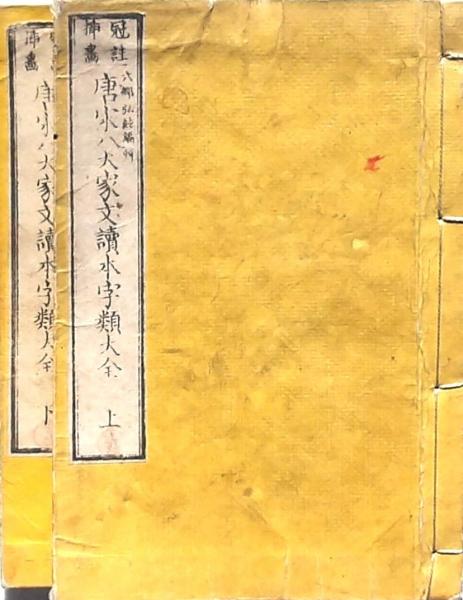 冠註
挿畫
唐宋八大家文讀本字類大全 上
挿畫
唐宋八大家文讀本字類大全 下